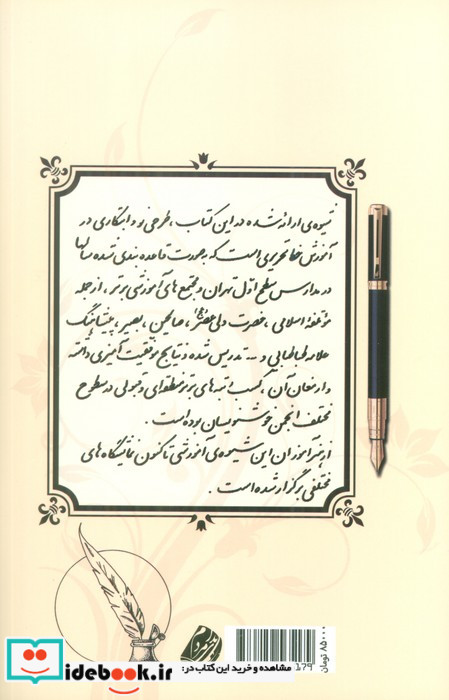 شیوه‌ی ارائه شده در این کتاب، طرحی نو و ابتکاری در
آموزش خط تحریری است که به صورت قاعده بندی شده سالها
در مدارس سطح اول تهران و مجتمع های آموزشی برتر، از جمله
مؤتلفهٔ اسلامی، حضرت ولی عصر(عج)، صالحین، بصیر، پیشتاز،
علامه طباطبایی و ... تدریس شده و نتایج موفقیت آمیزی داشته
و ارمغان آن، کسب رتبه های برتر منطقه‌ای و قبولی در سطوح
مختلف انجمن خوشنویسان بوده است.
از هنرآموزان این شیوه‌ی آموزشی تاکنون نمایشگاه های
مختلفی برگزار شده است.
۸۵۰۰۰ تومان
179
مشاهده و خرید این کتاب در:
idebook.ir